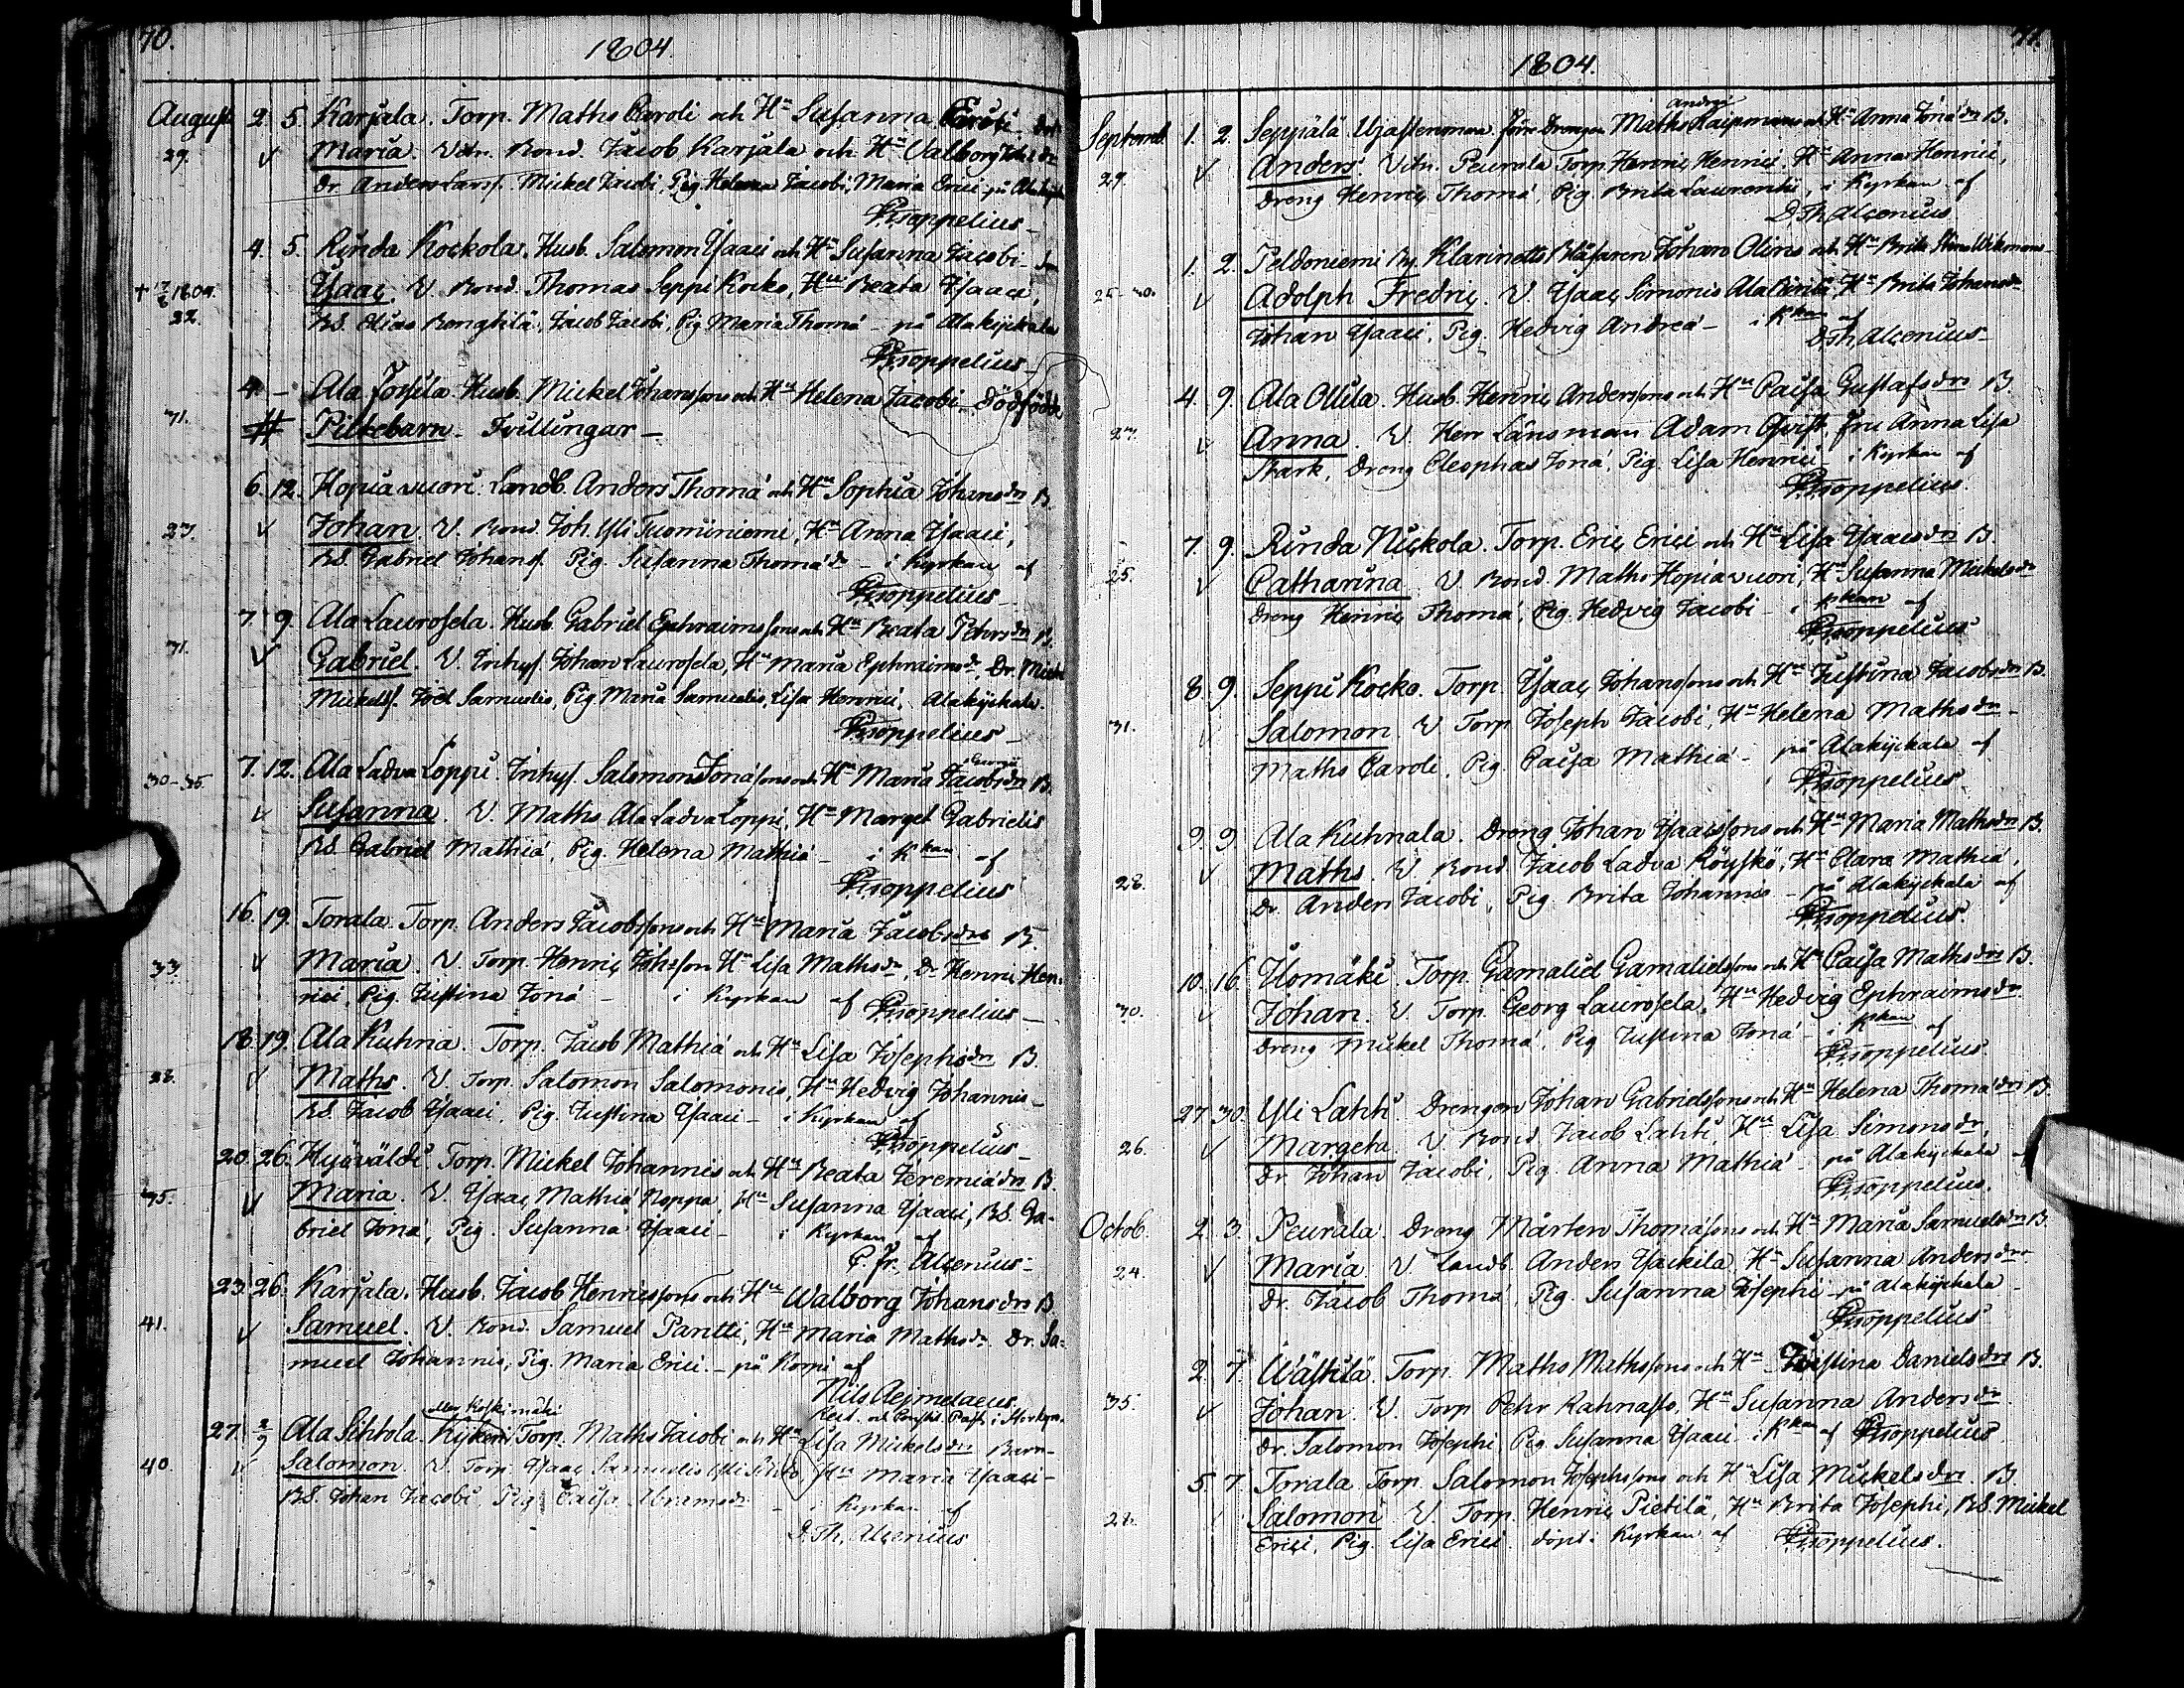 70.
1804.
August 2. 5. Karjala. Torp. Maths Caroli och Hu Susanna
29. Maria. Vitn. Bond. Jacob Karjala och Hu Valborg
Dr. Anders Larss. Mickel Jacobi, Pig. Helena Jacobi, Maria Erici på
Proppelius
4. 5. Rinda Kockola. Husb. Salomon Ysaaci och Hu Susanna Jacobi
† 7/8 1804. Ysaac. V. Bond. Thomas Seppi Kocko, Hu Beata Ysaaci,
22. BS. Elias Bengtilä, Jacob Jacobi, Pig Maria Thomæ på Alakyckala
Proppelius
4. – Ala Jossila. Husb. Mickel Johanssons och Hu Helena Jacobi Dödfödde
31. # Piltebarn – Tvillingar –
6. 12. Hopiavuori. Landb. Anders Thomæ och Hu Sophia Johansdr B.
27. Johan. V. Bond. Joh. Yli Tuominiemi, Hu Anna Ysaaci,
BS. Gabriel Johans. Pig. Susanna Thomædr – i Kyrkan af
Proppelius
7. 9. Ala Laurosela. Husb. Gabriel Ephraimssons och Hu Beata Petersdr B.
31. Gabriel. V. Inhys. Johan Laurosela, Hu Maria Ephraimsdr, Dr. Mickel
Mickelss. Joel Samuelis, Pig. Maria Samuelis, Lisa Henrici, Alakyckala.
Proppelius
7. 12. Ala Ladva Loppi. Inhys. Salomon Jonæ sons och Hu Maria Jacobsdr B.
30-35. Susanna. V. Maths Ala Ladva Loppi, Hu Marget Gabrielis
BS. Gabriel Mathiæ, Pig. Helena Mathiæ – i Kkan af
Proppelius
16. 19. Torala. Torp. Anders Jacobssons och Hu Maria Jacobsdr B.
33. Maria. V. Torp. Henric Johsson Hu Lisa Mathsdr, Dr Henric Hen-
rici, Pig. Justina Jonæ – i Kyrkan af Proppelius
18. 19. Ala Kuhna. Torp. Jacob Mathiæ och Hu Lisa Josephsdr B.
28. Maths. V. Torp. Salomon Salomonis, Hu Hedvig Johannis –
BS. Jacob Ysaaci, Pig. Justina Ysaaci – i Kyrkan af
Proppelius
20. 26. Hyöväldi. Torp. Mickel Johannis och Hu Beata Jeremiædr B.
35. Maria. V. Ysaac Mathiæ Noppa, Hu Susanna Ysaaci, BS. Ga-
briel Jonæ, Pig. Susanna Ysaaci – i Kyrkan af
C. Fr. Alcenius
23. 26. Karjala. Husb. Jacob Henricssons och Hu Walborg Johansdr B.
41. Samuel. V. Bond. Samuel Pantti, Hu Maria Mathsdr. Dr. Sa-
muel Johannis, Pig. Maria Erici – på Korpi af
Nils Aejmelaeus
27. 2/9 Ala Sihtola. eller Koskimäki Torp. Maths Jacobi och Hu Lisa Mickelsdr Barn
40. Salomon. V. Torp. Ysaac Samuelis Maria Ysaaci –
BS. Johan Jacobi Pig. Caisa Abramsdr – i Kyrkan af
D. Th. Alcenius
71.
1804.
Septemb. 1. 2. Seppälä. Maths Andreæ Hu Anna Jonædr B.
29. Anders. Vitn. Peurala Torp. Henric Henrici. Hu Anna Henrici,
Dreng Henric Thomæ, Pig. Brita Laurentii, i Kyrkan af
D. Th. Alcenius
1. 2. Peldoniemi By. Klarinetts Blåsaren Johan Olins och Hu Brita Stina Wikmans
25-30. Adolph Fredric. V. Ysaac Simonis Ala Pirilä, Hu Brita Johansdr
Johan Ysaaci, Pig. Hedvig Andreæ – i Kkan af
D. Th. Alcenius
4. 9. Ala Ollila. Husb. Henric Anderssons och Hu Caisa Gustafsdr B.
27. Anna. V. Herr Länsman Adam Qvist, Fru Anna Lisa
Thark, Dreng Cleophas Jonæ, Pig. Lisa Henrici – i Kyrkan af
Proppelius
7. 9. Rinda Nickola. Torp. Eric Erici och Hu Lisa Ysaacsdr B.
25. Catharina. V. Bond. Maths Hopiavuori, Hu Susanna Mickelsdr
Dreng Henric Thomæ, Pig. Hedvig Jacobi – i Kkan af
Proppelius
8. 9. Seppi Kocko. Torp. Ysaac Johanssons och Hu Justina Jacobsdr B.
31. Salomon. V. Torp. Joseph Jacobi, Hu Helena Mathsdr –
Maths Caroli, Pig. Caisa Mathiæ – på Alakyckala af
Proppelius
9. 9. Ala Kuhnala. Dreng Johan Ysaacssons och Hu Maria Mathsdr B.
28. Maths. V. Bond. Jacob Ladva Röyskö, Hu Clara Mathiæ,
Dr. Anders Jacobi, Pig. Brita Johannis – på Alakyckala af
Proppelius
10. 16. Uomäki. Torp. Gamaliel Gamalielssons och Hu Caisa Mathsdr B.
30. Johan. V. Torp. Georg Laurosela, Hu Hedvig Ephraimsdr
Dreng Mickel Thomæ, Pig Justina Jonæ – i Kkan af
Proppelius
27. 30. Yli Lahti. Drengen Johan Gabrielssons och Hu Helena Thomædr B.
26. Margeta. V. Bond. Jacob Lahti, Hu Lisa Simonsdr,
Dr. Johan Jacobi, Pig. Anna Mathiæ – på Alakyckala af
Proppelius.
Octob. 2. 3. Peurala. Dreng Mårten Thomæsons och Hu Maria Samuelsdr B.
24. Maria. V. Landb. Anders Ysackila, Hu Susanna Andersdr
Dr. Jacob Thomæ, Pig. Susanna Josephi – på Alakyckala –
Proppelius
2. 7. Wästilä. Torp. Maths Mathssons och Hu Justina Danielsdr B.
35. Johan. V. Torp. Pehr Rahnasto, Hu Susanna Andersdr
Dr. Salomon Josephi, Pig Susanna Ysaaci i Kkan af Proppelius
5. 7. Torala. Torp. Salomon Josephssons och Hu Lisa Mickelsdr B.
28. Salomon. V. Torp. Henric Pietilä, Hu Brita Josephi, BS. Mickel
Erici, Pig. Lisa Erici. döpt i Kyrkan af Proppelius.